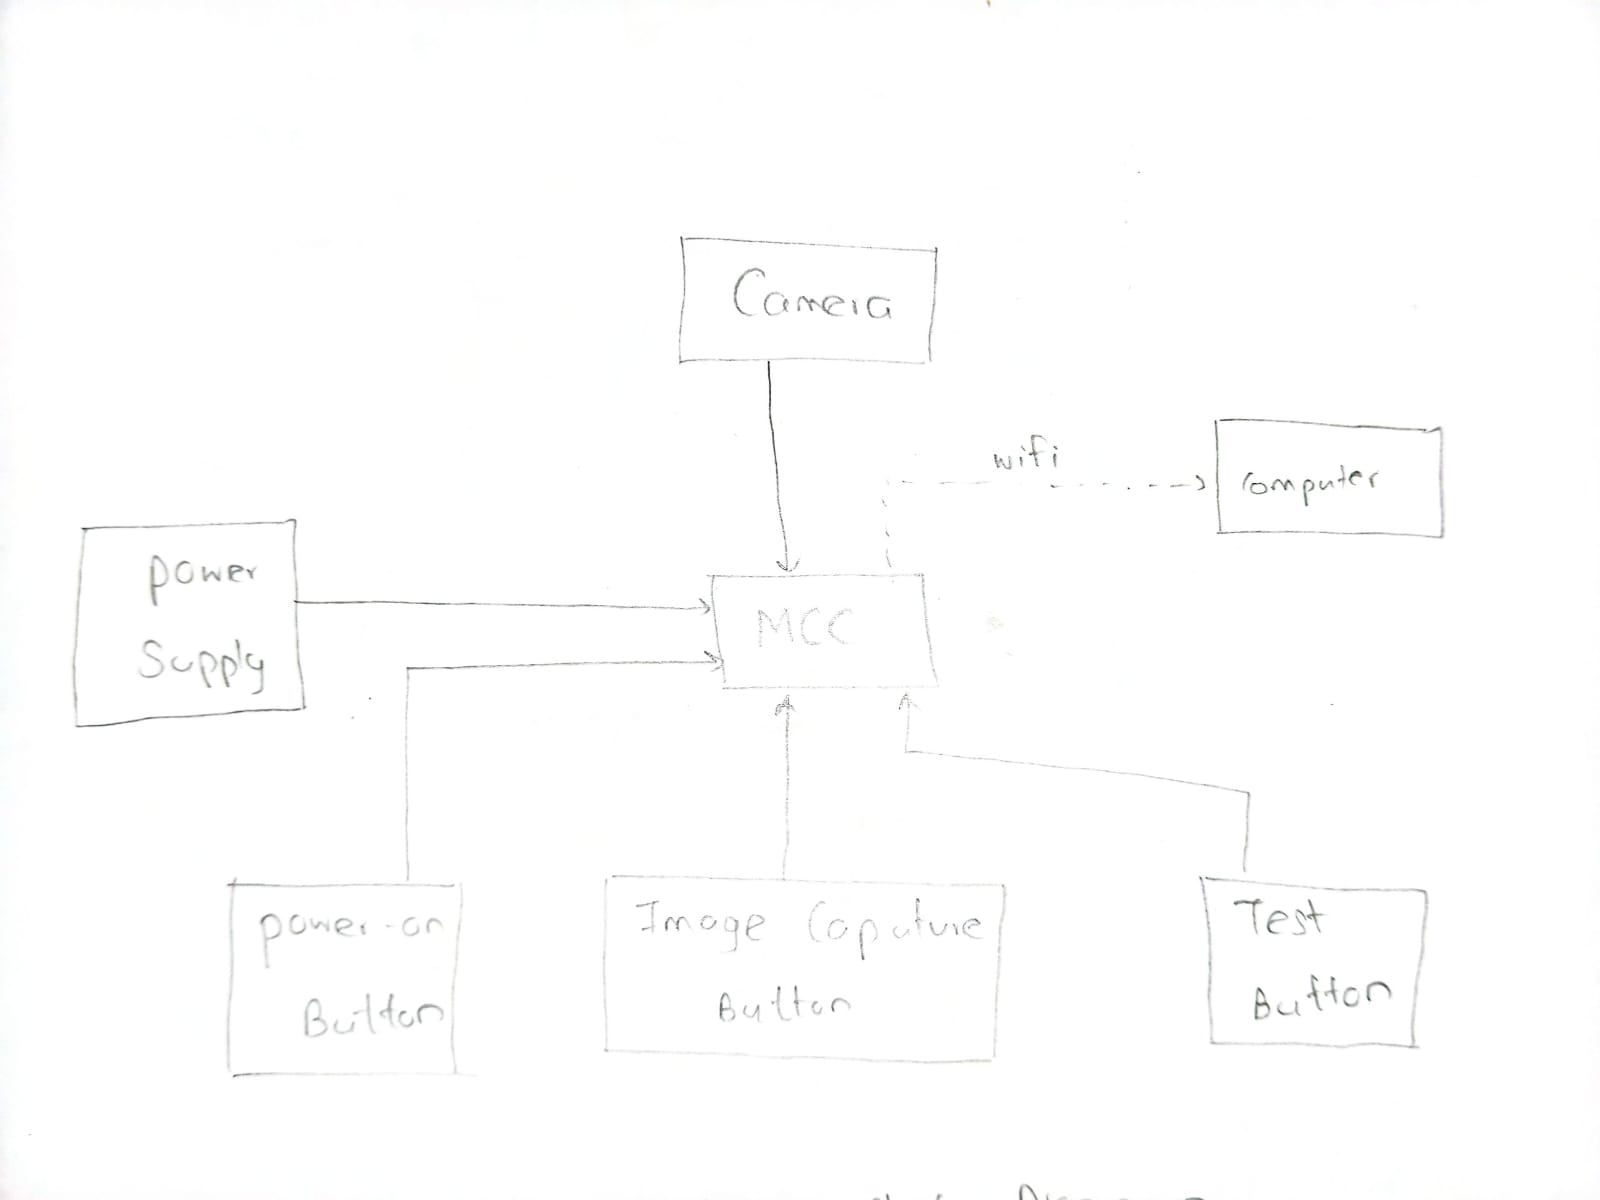 Camera
wifi
Computer
power
Supply
MCC
power-on
Button
Image Caputure
Button
Test
Button